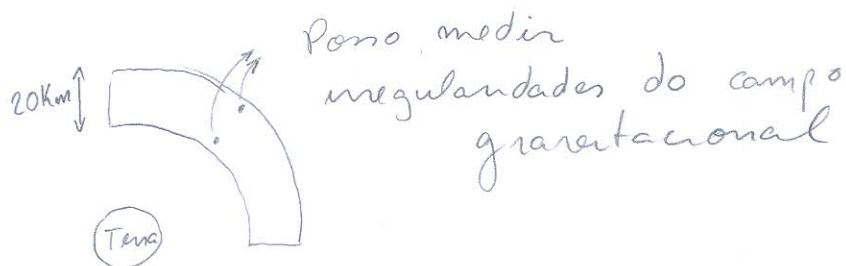 Posso medir
irregularidades do campo
gravitacional
20Km
Terra